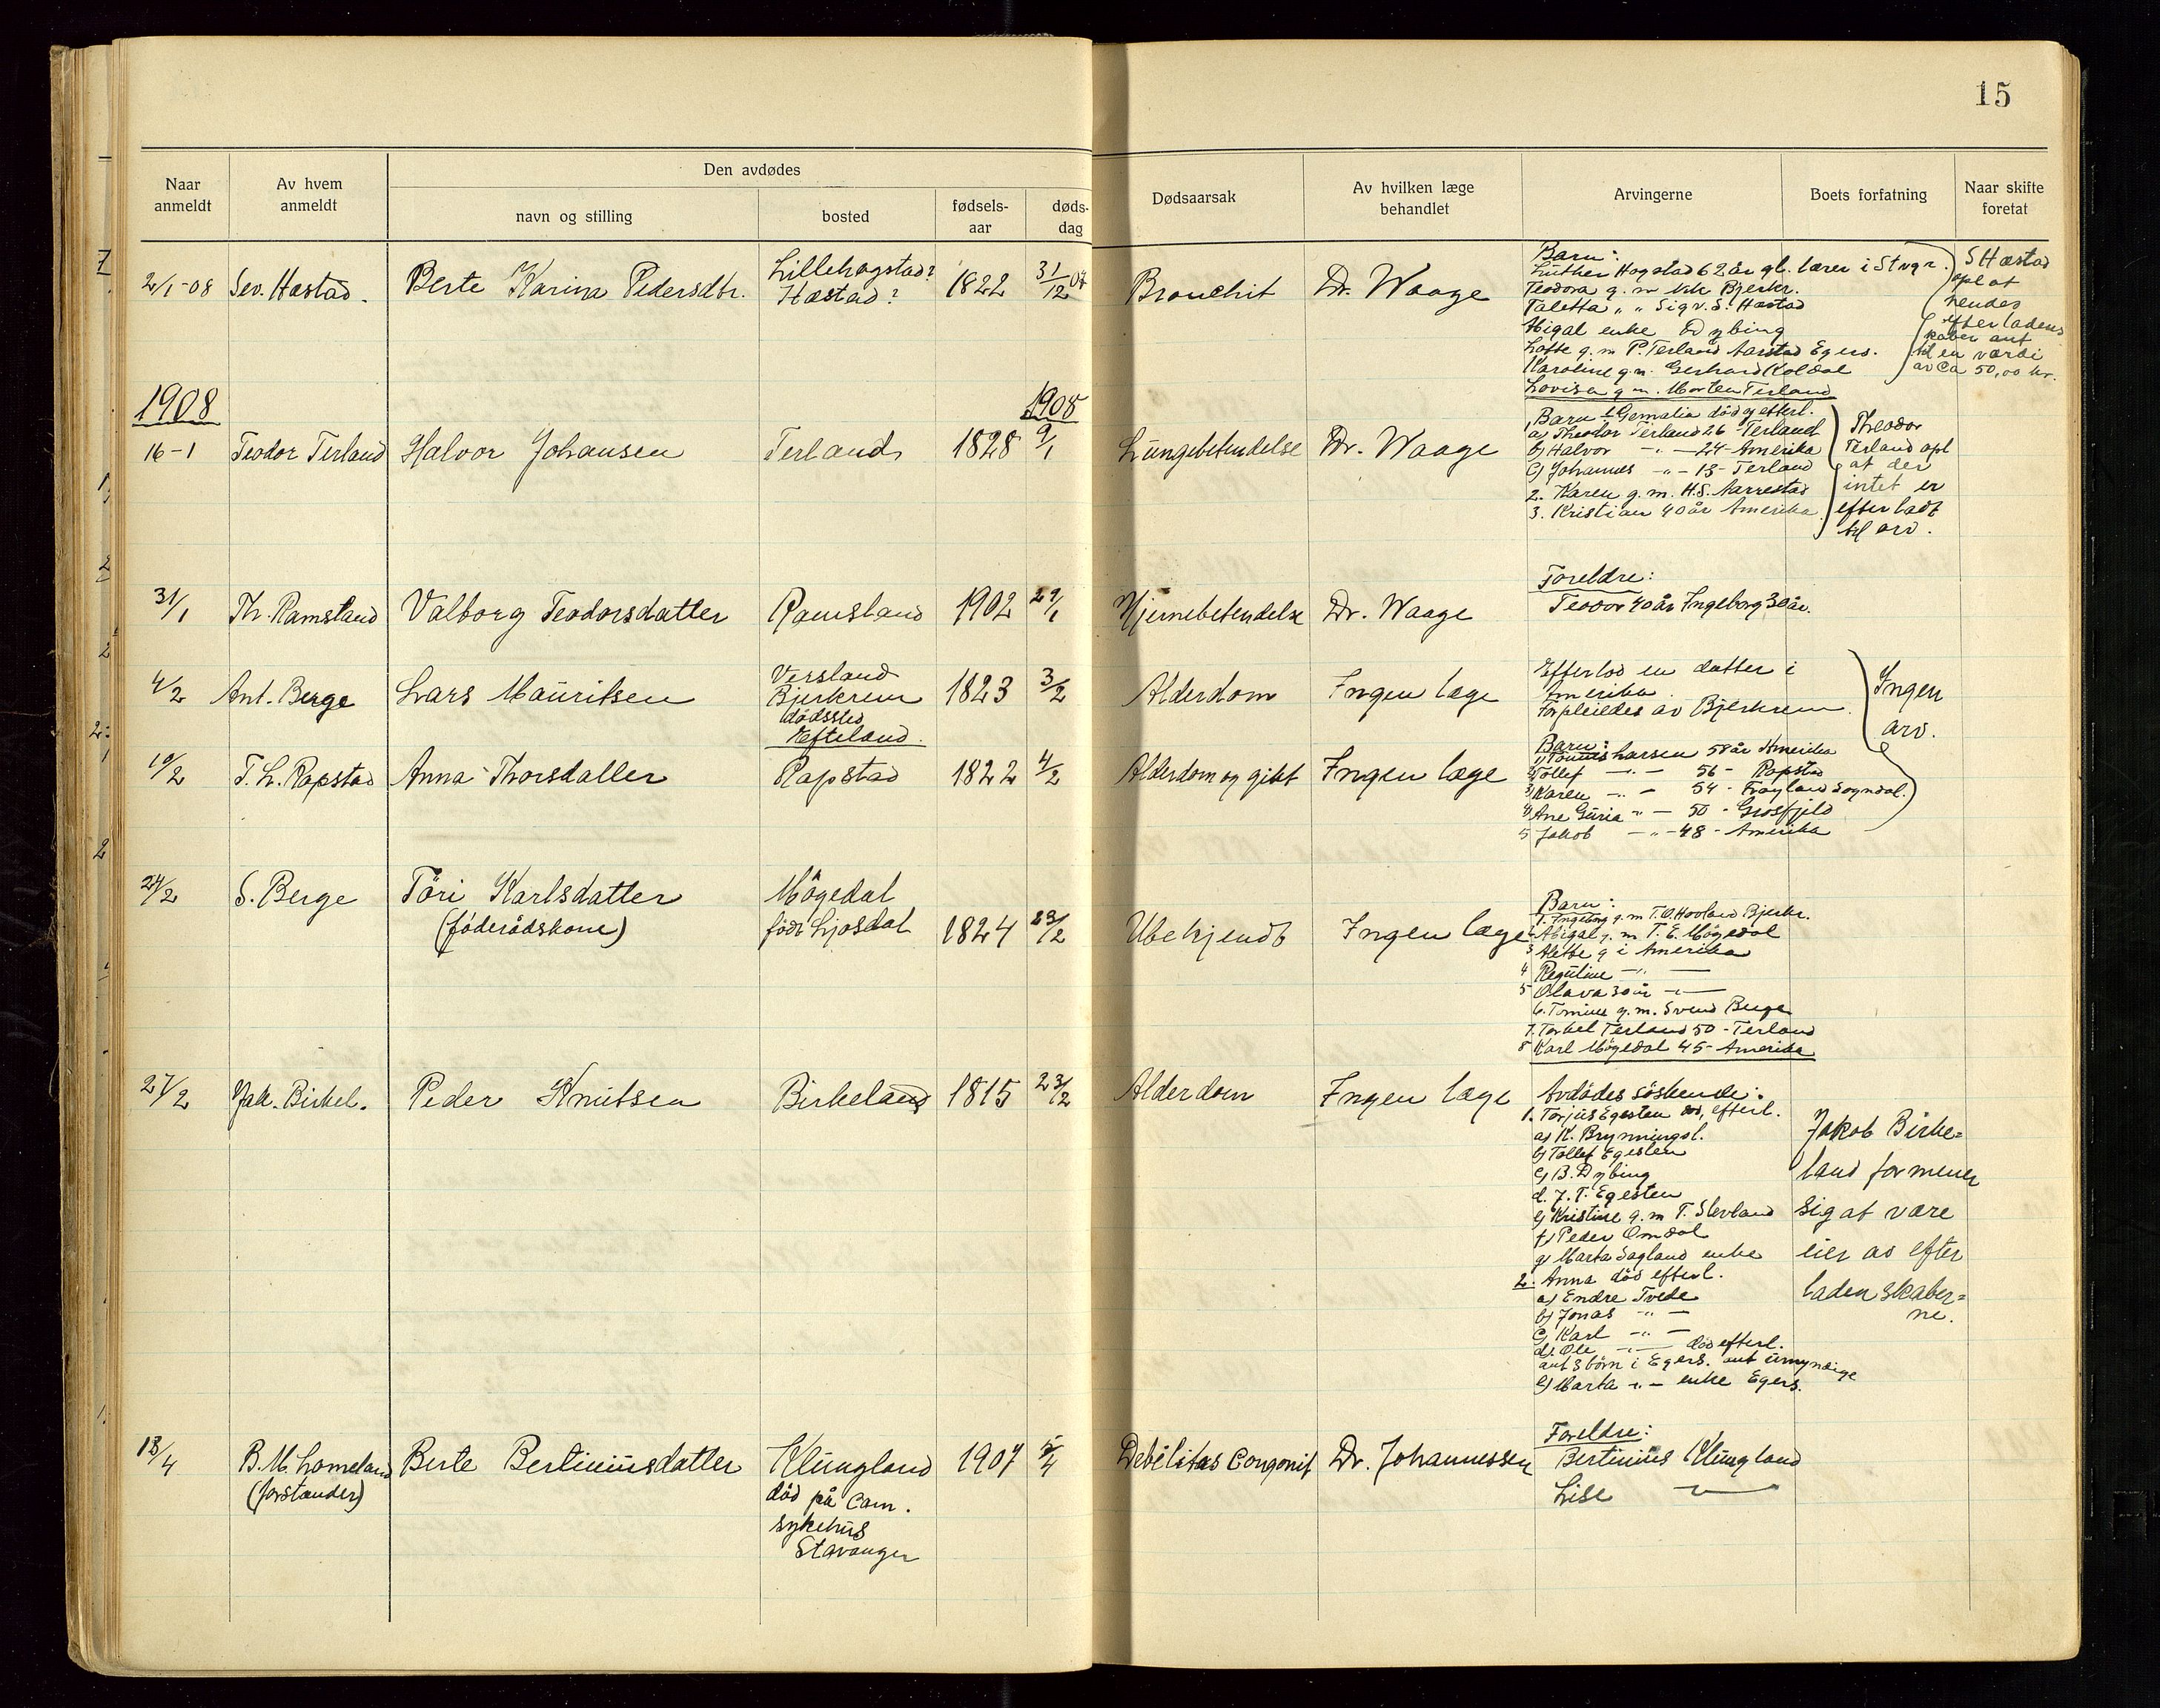 15
Naar anmeldt
Av hvem anmeldt
Den avdødes
navn og stilling
bosted
fødsels-aar
døds-dag
Dødsaarsak
Av hvilken læge behandlet
Arvingerne
Boets forfatning
Naar skifte foretat
2/1-08 Sev. Hæstad. Berte Karina Pedersdtr. Lillehagstad? 1822 31/12 07 Bronchit Dr. Waage
Hæstad?
Barn:
Luther Hogstad 62 år gl. lærer i Stvgr.
Teodora g. m Bjerkr.
Taletta " " Sigv. S. Hæstad
Abigal enke Dybing
Lotte g. m P. Terland Aarstad Egers.
Karoline g. m. Gerhard Koldal
Lovisa g m. Morten Terland
S Hæstad
opl at
hendes
efterladens
kaber ant
til en værdi
av ca 50,00 kr.
1908
1908
16-1 Teodor Terland Halvor Johansen Terland 1828 9/1 Lungebetendelse Dr. Waage
Barn 1 Gemalia død efterl.
a) Theodor Terland 26 - Terland
b) Halvor -"- 24 - Amerika
c) Johannes -"- 13 - Terland
2. Karen g. m. H.S. Aarrestad
3. Kristian 40 år Amerika
Theodor
Terland opl
at der
intet er
efterladt
til arv.
31/1 Th. Ramsland Valborg Teodorsdatter Ramsland 1902 29/1 Hjernebetendelse Dr. Waage
Foreldre:
Teodor 40 år Ingeborg 30 år.
4/2 Ant. Berge Lars Mauritsen Versland 1823 3/2 Alderdom Ingen læge
Bjerkrem
dødssted
Efteland.
Efterlod en datter i
Amerika.
Forpleiedes av Bjerkrem
Ingen
arv.
10/2 T. L. Rapstad Anna Thorsdatter Rapstad 1822 4/2 Alderdom og gikt Ingen læge
Barn:
1) Tønnes Larsen 58 år Amerika
2) Tollef -"- 56 - Rapstad
3) Karen -"- 54 - Frøyland Sogndal.
4) Ane Guria -"- 50 - Grosfjeld
5 Jakob -"- 48 - Amerika
24/2 S. Berge Töri Karlsdatter Mögedal
(føderådskone) født Ljosdal 1824 23/2 Ubekjendt Ingen læge
Barn:
1. Ingeborg g. m T. O. Hovland Bjerkr.
2 Abigal g. m T. E. Mögedal
3 Alette g i Amerika
4 Reguline -"-
5 Olava 30 år -"-
6. Tomine g. m. Svend Berge
7. Torkel Terland 50 - Terland
8 Karl Mögedal 45 - Amerika
27/2 Jak. Birkel. Peder Knutsen Birkeland 1815 23/2 Alderdom Ingen læge
Avdödes söskende:
1. Torjus Egesten död, efterl.
a) K. Brynningsl.
b) Tollef Egesten
c) B. Dybing
d. J. T. Egesten
e) Kristine g. m T. Slevland
f) Peder Omdal
g) Marta Sagland enke
2. Anna död efterl.
a) Endre Tvede
b) Jonas -"-
c) Karl -"-
d). Ole -"- død efterl.
ant 3 börn i Egers. ant umyndige
e) Marta -"- enke Egers.
Jakob Birke=
land formener
sig at være
eier av efter
ladenskaber=
ne.
13/4 B. M. Lomeland Berte Bertiniusdatter Klungland 1907 5/4 Debilitas Congonit Dr. Johannessen
(forstander)
død på Com.
sykehus
Stavanger
Foreldre:
Bertinius Klungland
Lise -"-